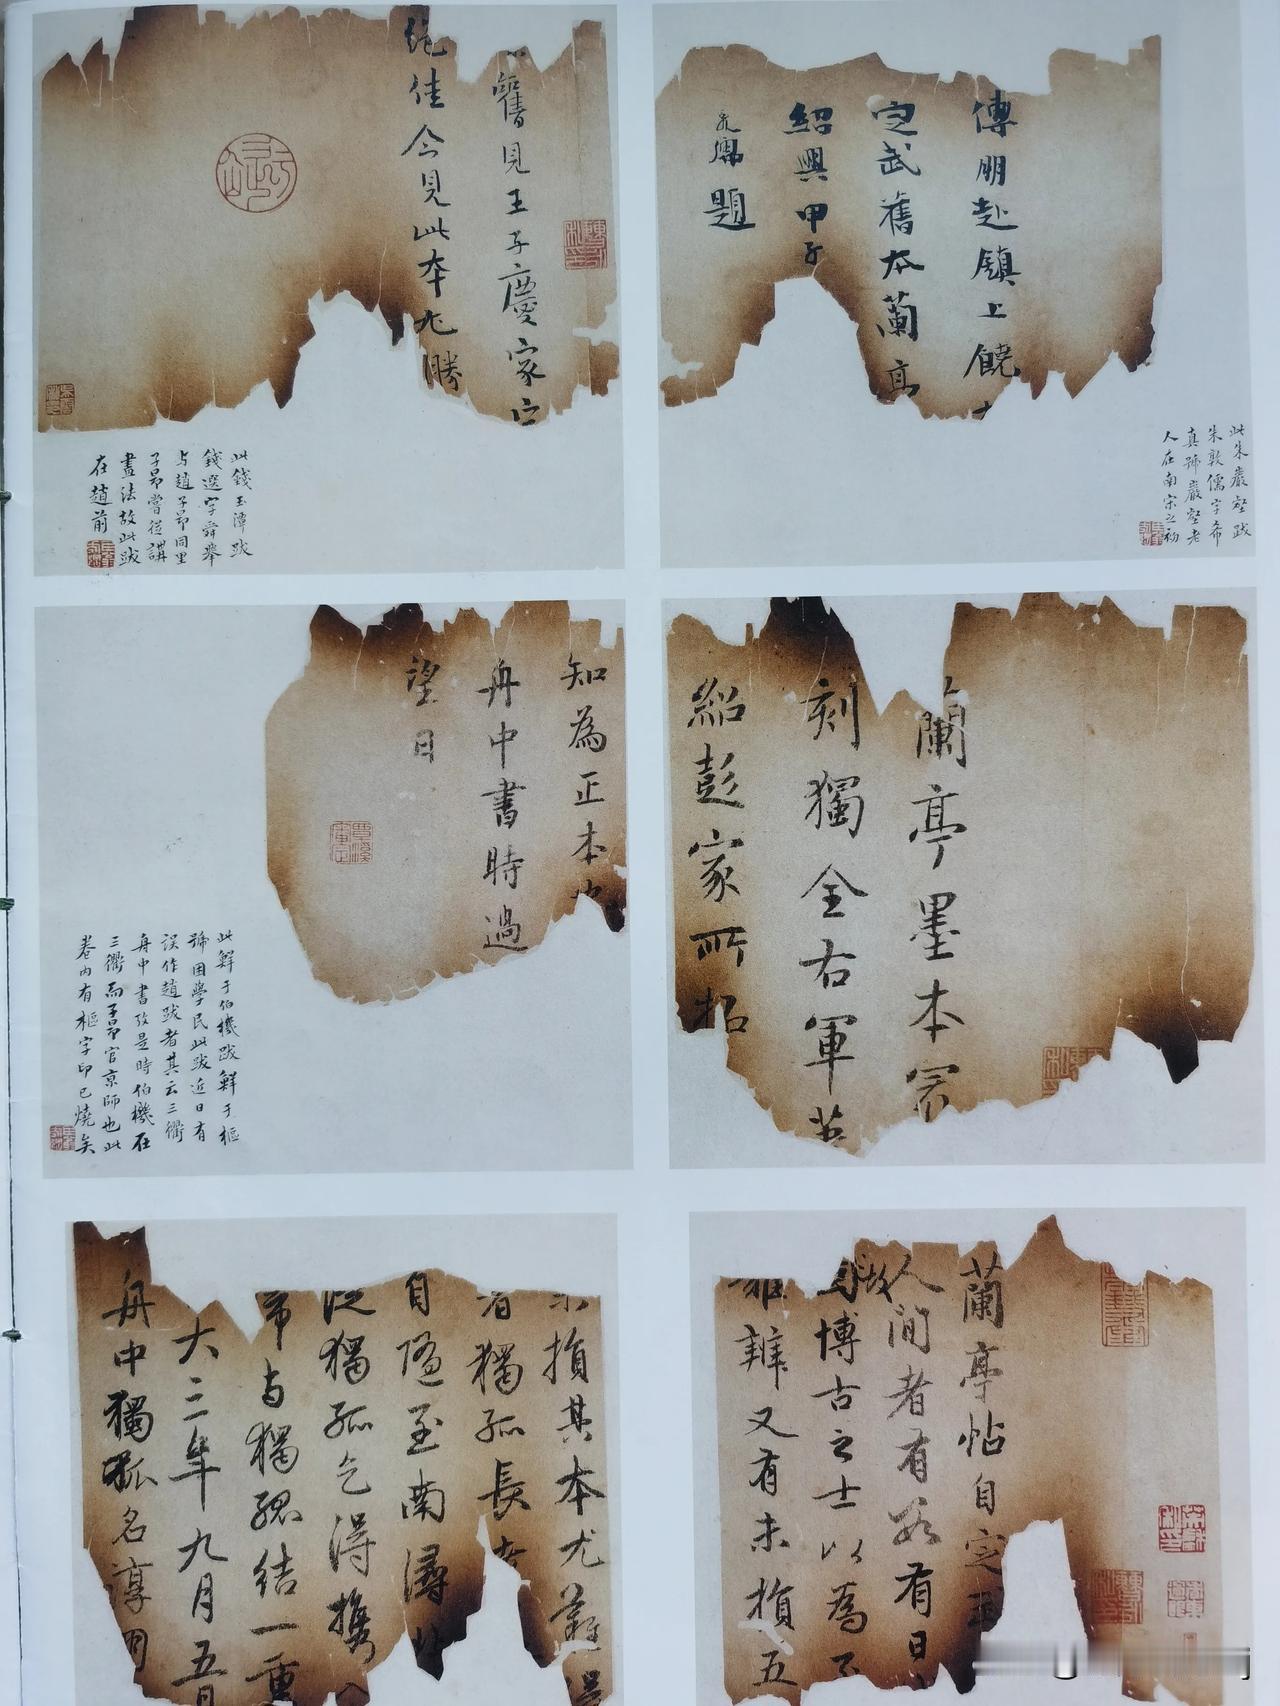 傅朋赴鎮上饒
定武舊本蘭亭
紹興甲子
題
此朱巖壑跋
朱敦儒字希
真號巖壑老
人在南宋之初
舊見王子慶家定
絕佳今見此本尤勝
此錢玉潭跋
錢選字舜舉
与趙子昂同里
子昂嘗從講
畫法故此跋
在趙前
蘭亭墨本冣
刻獨全右軍
紹彭家所拓
知為正本也
舟中書時過
望日
此鮮于伯機跋鮮于樞
號困學民此跋近日有
误作趙跋者其云三衢
舟中書攷是時伯機在
三衢而子昂官京師也此
卷内有樞字印已燒矣
蘭亭帖自定武
人間者有數有日
故博古之士以為
難辨又有未損五
未損其本尤難得
者獨孤長老
自隨至南潯北
從獨孤乞得攜入
常与獨孤結一重
大三年九月五日
舟中獨孤名淳朋